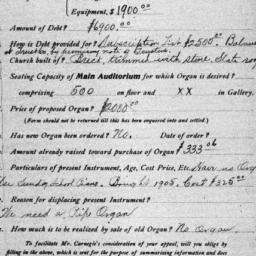 Equipment, $ 1900.00
Amount of Debt? $6900.00
How is Debt provided for? Subscription List $2500. Balance
Church built of? Brick, trimmed with stone, Slate roof
Seating Capacity of Main Auditorium for which Organ is desired?
comprising 500 on floor and XX in Gallery.
Price of proposed Organ? $2000.00
(Form should not be returned till this has been enquired into and settled.)
Has new Organ been ordered? No. Date of order?
Amount already raised toward purchase of Organ? $333.06
Particulars of present Instrument, Age, Cost Price, Etc. Have no Organ
Sunday School Piano. Bought 1905. Cost $325.00
Reason for displacing present Instrument?
We need a Pipe Organ
How much is to be realized by sale of old Organ? No Organ
To facilitate Mr. Carnegie's consideration of your appeal, will you oblige by
filling in the above, which is sent for the purpose of summarising information and does